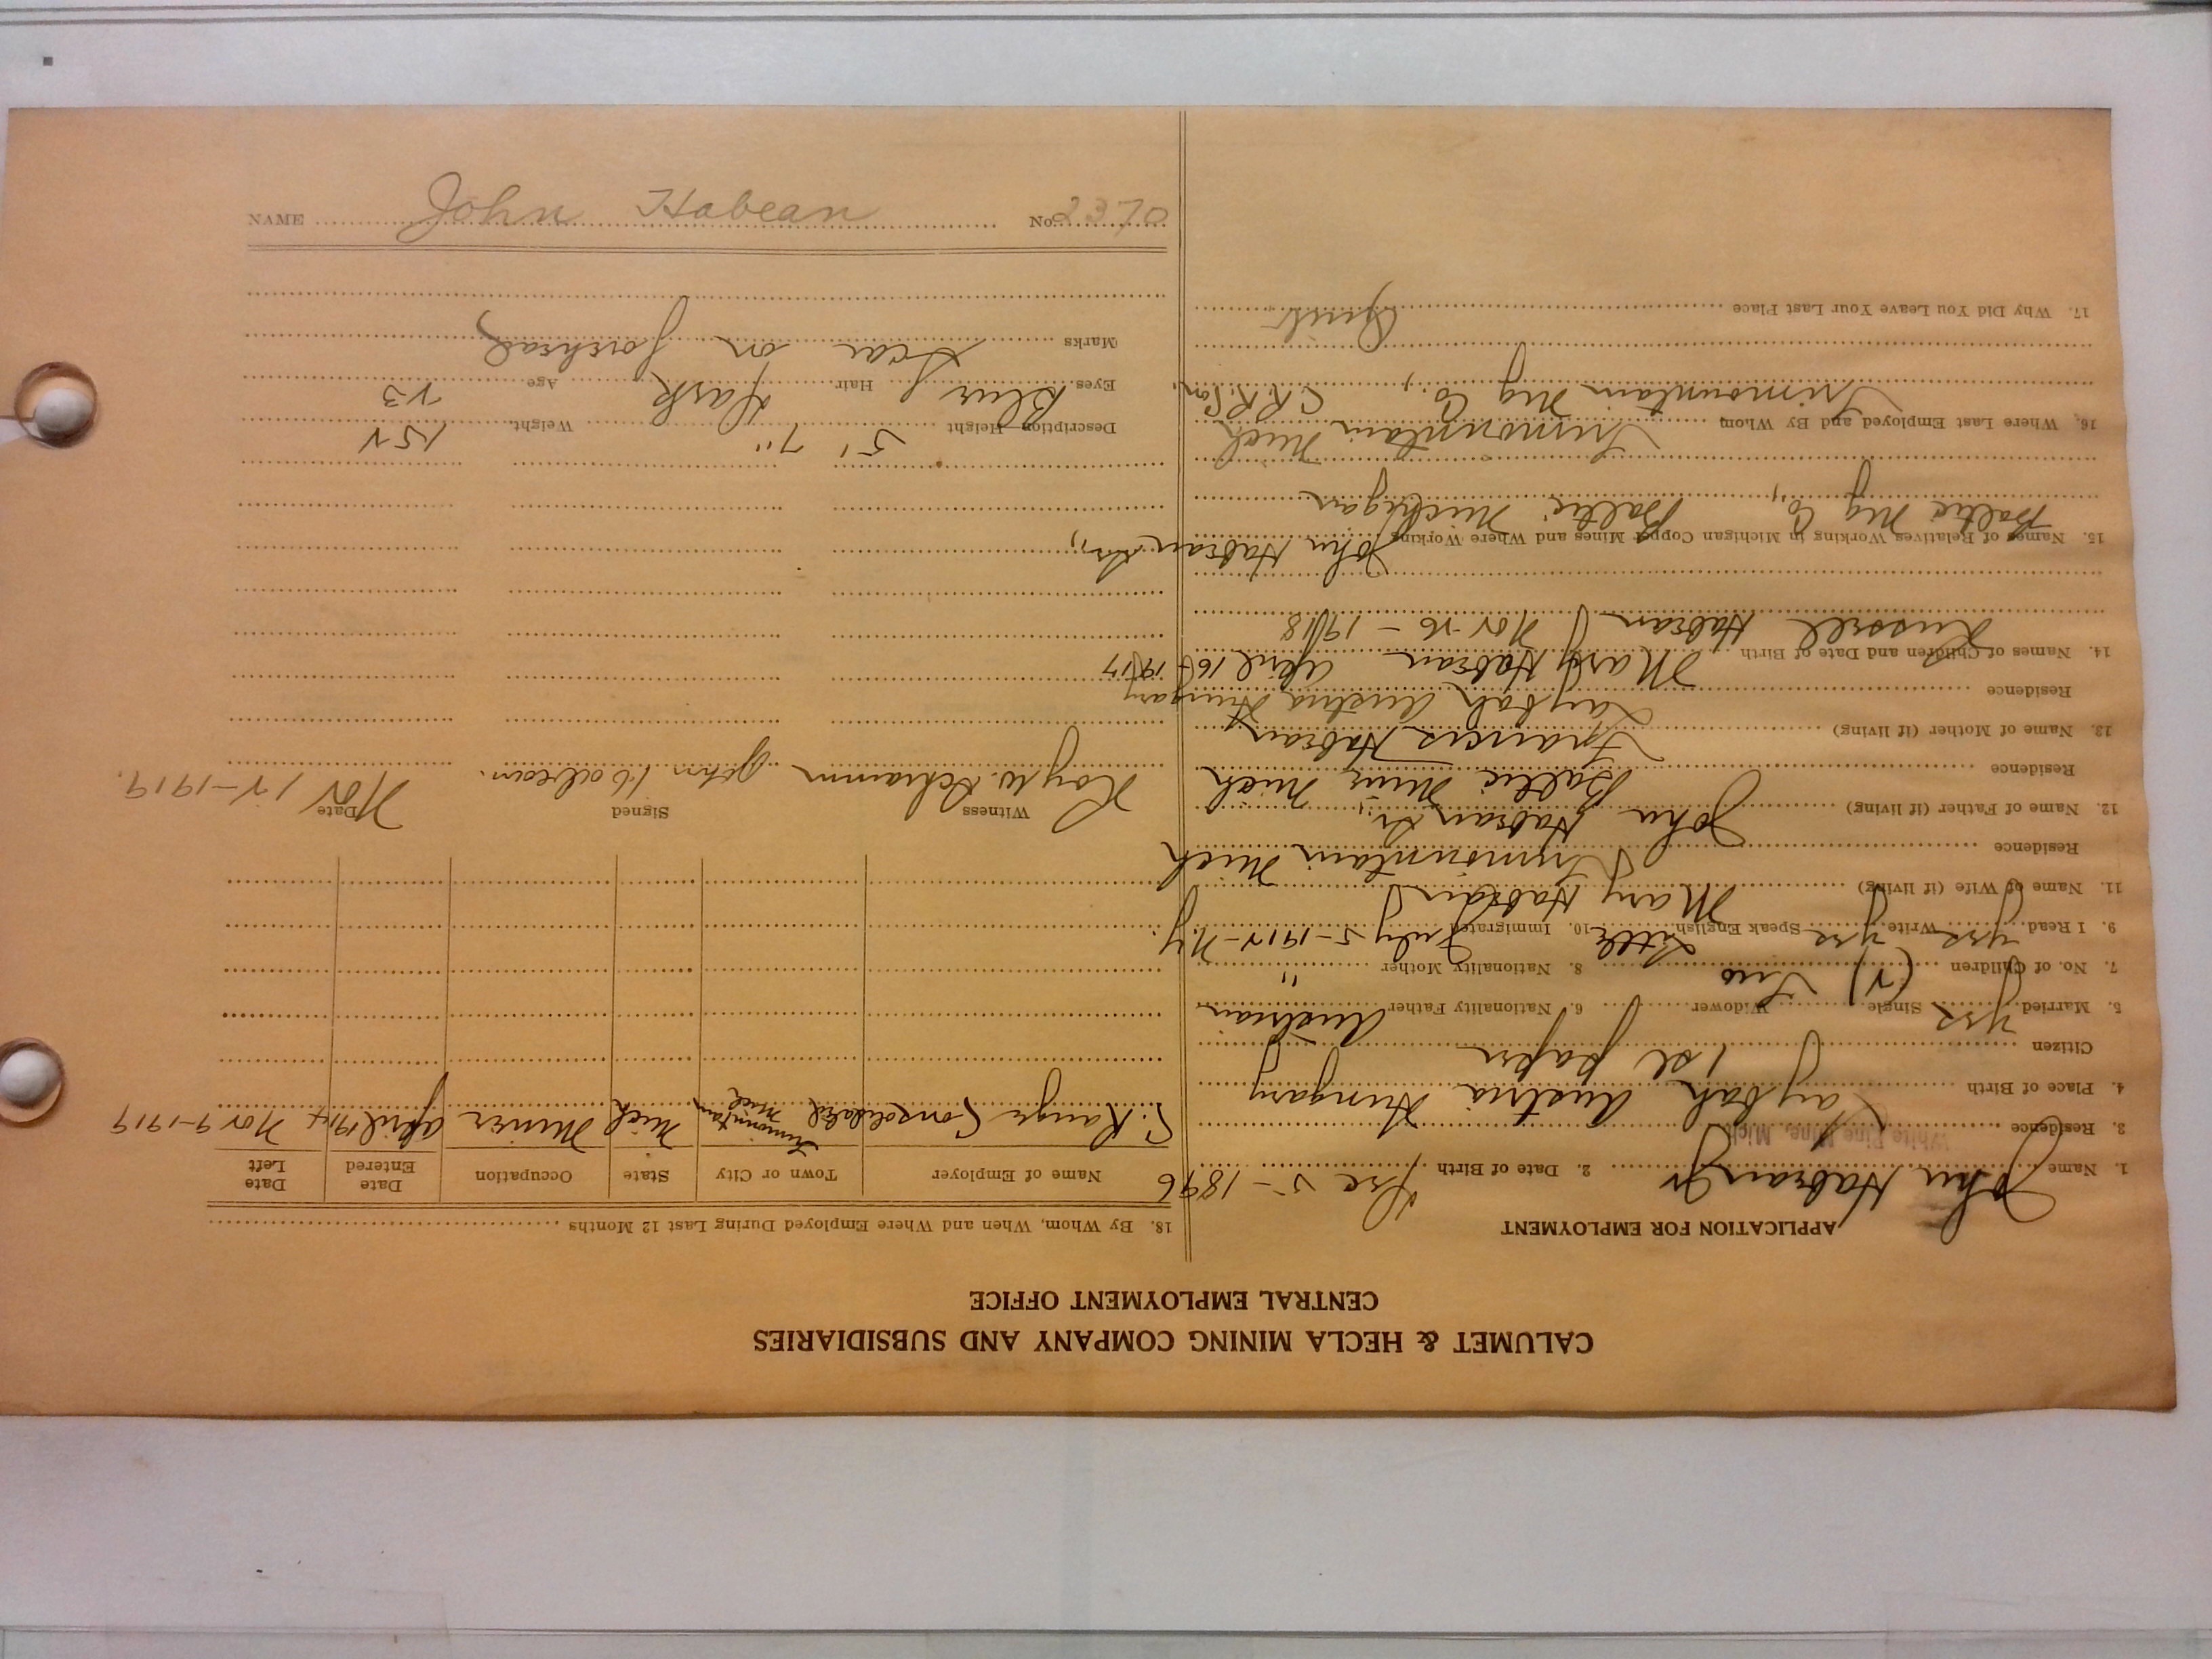 CALUMET & HECLA MINING COMPANY AND SUBSIDIARIES
CENTRAL EMPLOYMENT OFFICE
APPLICATION FOR EMPLOYMENT
1. Name John Habean Jr 2. Date of Birth Dec 25 - 1896
3. Residence White Pine Mine, Mich.
4. Place of Birth Laybah Austria Hungary
Citizen 1st paper
5. Married yes Single Widower 6. Nationality Father Austrian
7. No. of Children (2) Two 8. Nationality Mother "
9. I Read yes Write yes Speak English Little 10. Immigrated July 5-1912-N.Y.
11. Name of Wife (if living) Mary Habean
Residence Trimountain Mich
12. Name of Father (if living) John Habean Sr.,
Residence Baltic Mine Mich
13. Name of Mother (if living) Francis Habean
Residence Laybah Austria Hungary
14. Names of Children and Date of Birth Mary Habean April 16-1917
Russell Habean Nov-26-1918
15. Names of Relatives Working in Michigan Copper Mines and Where Working John Habean Sr.,
Baltic Mg Co., Baltic Michigan
16. Where Last Employed and By Whom Trimountain Mich
Trimountain Mg Co., C.R.R. Con.
17. Why Did You Leave Your Last Place Quit
18. By Whom, When and Where Employed During Last 12 Months
Name of Employer Town or City State Occupation Date Entered Date Left
C. Range Consolidated Trimountain Mich Mich Miner April 1914 Nov 9-1919
Witness Signed Date
Roy W. Schramm John Habean. Nov 12-1919.
Description—Height 5' 7" Weight 152
Eyes Blue Hair Dark Age 23
Marks Scar on forehead
NAME John Habean No. 2370